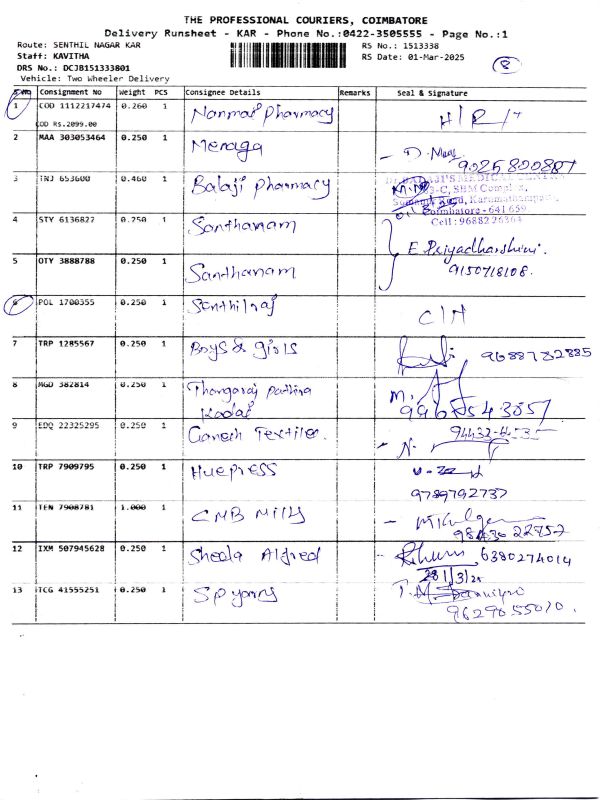 THE PROFESSIONAL COURIERS, COIMBATORE
Delivery Runsheet - KAR - Phone No.:0422-3505555 - Page No.:1
Route: SENTHIL NAGAR KAR RS No.: 1513338
Staff: KAVITHA RS Date: 01-Mar-2025
DRS No.: DCJB151333801 8
Vehicle: Two Wheeler Delivery
S No Consignment No Weight PCS Consignee Details Remarks Seal & Signature
1 COD 1112217474 0.260 1 Nanmai Pharmacy
COD Rs.2099.00
2 MAA 303053464 0.250 1 Menaga
9025820887
3 TRJ 653600 0.460 1 Balaji Pharmacy
Coimbatore - 641 659
Cell : 96882 26364
4 STY 6136827 0.250 1 Santhanam
E. Priyadharshini.
5 OTY 3888788 0.250 1 Santhanam 9150718108.
6 POL 1700355 0.250 1 Senthilraj
7 TRP 1285567 0.250 1 Boys & girls 9688782885
8 MGD 382814 0.250 1 Thangaraj
Kadai
9 EDQ 22325295 0.250 1 Ganesh Textiles.
10 TRP 7909795 0.250 1 Huepress
9789792737
11 TEN 7908781 1.000 1 CMB Mills
12 IXM 507945628 0.250 1 Sheela Alfred 6380274014
13 TCG 41555251 0.250 1 SP yarns
9629055070.